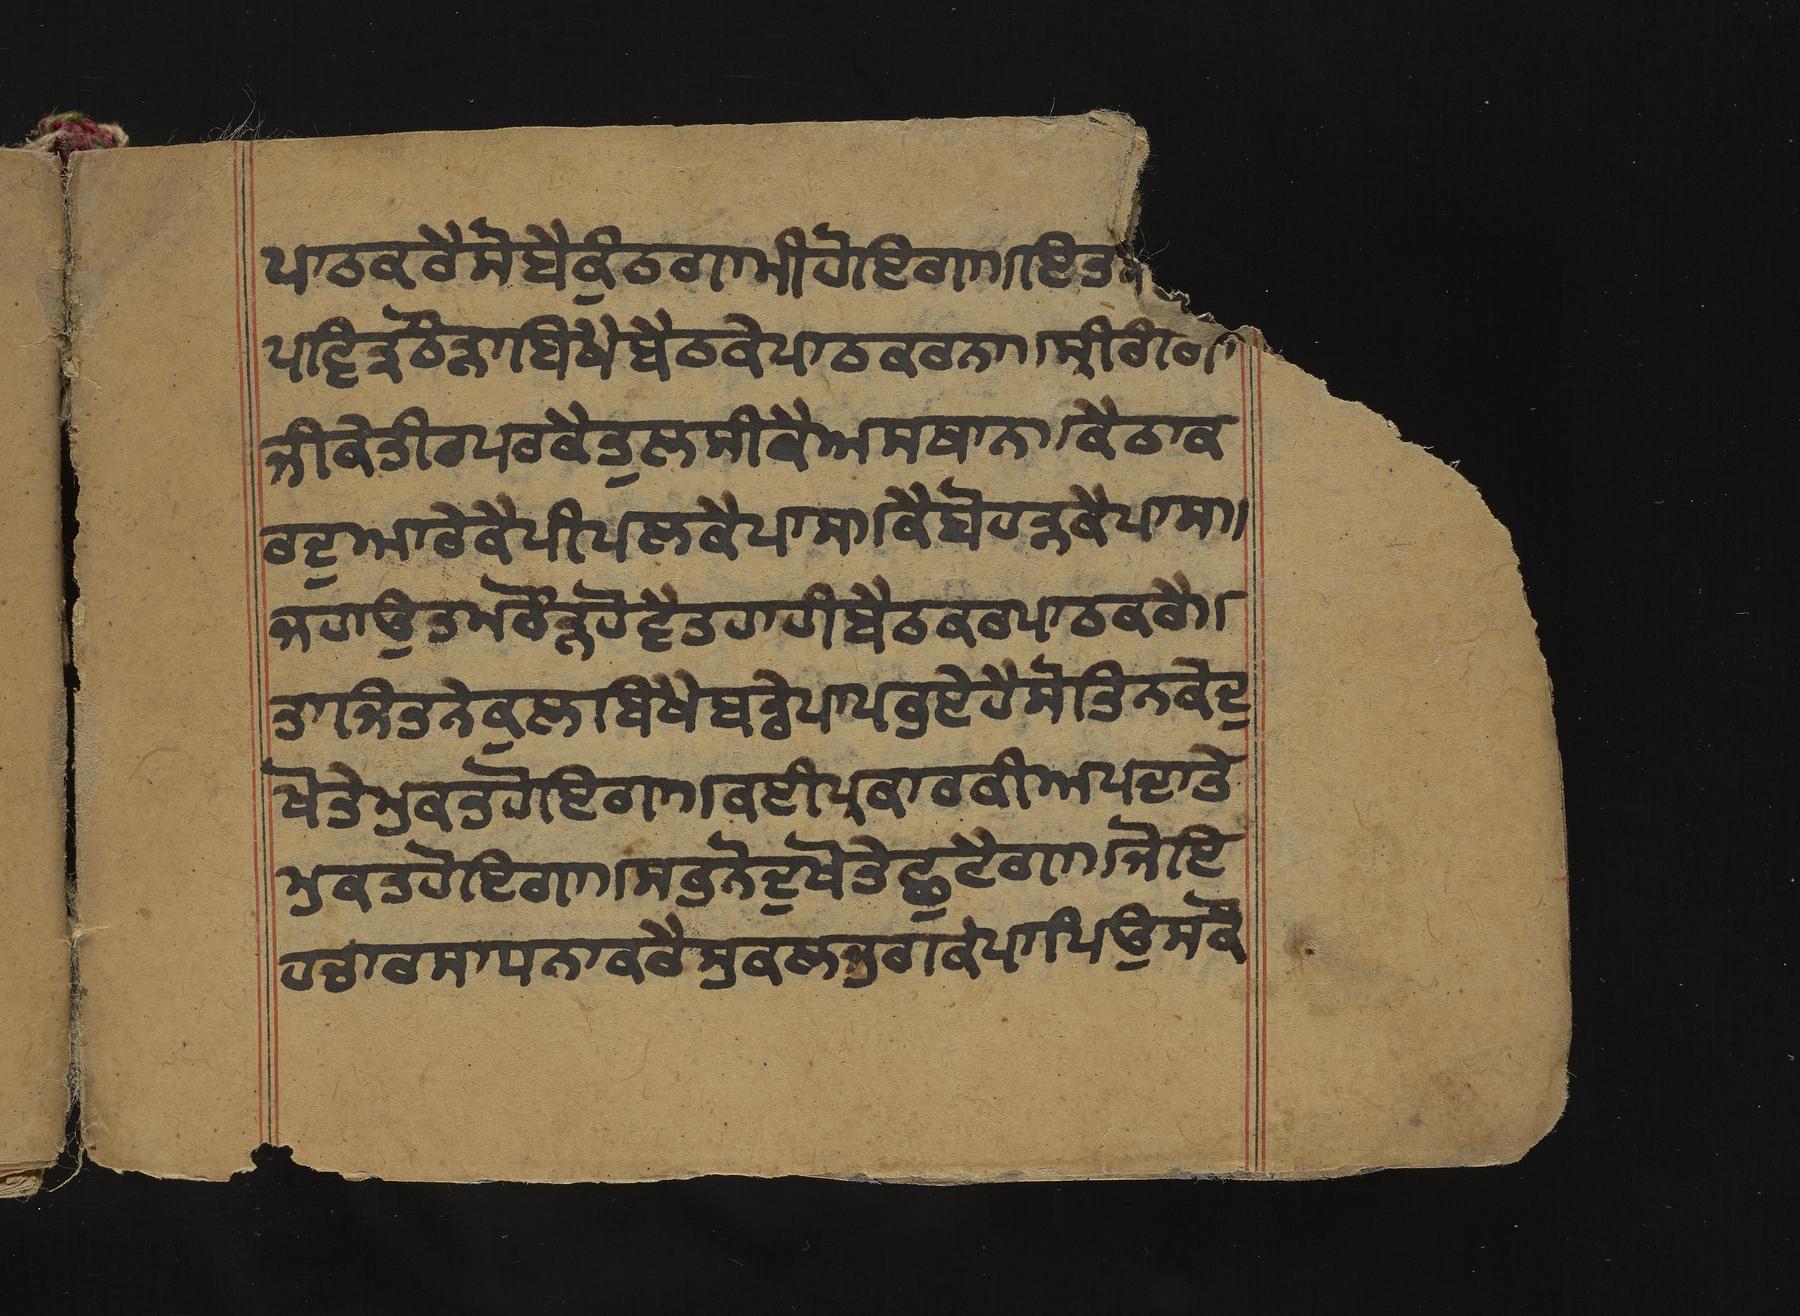 ਪਾਠਕਰੈਸੋਬੈਕੁੰਠਗਾਮੀਹੋਇਗਾ॥ਇਤ
ਪਵਿਤ੍ਰਠੌੜਾਬਿਖੈਬੈਠਕੇਪਾਠਕਰਨਾ॥ਸ੍ਰੀਗੰਗਾ
ਜੀਕੇਤੀਰਪਰਕੈਤੁਲਸੀਕੈਅਸਥਾਨ।ਕੈਠਾਕ
ਰਦੁਆਰੇਕੈਪੀਪਲਕੈਪਾਸ॥ਕੈਬੋਹੜਕੈਪਾਸ॥
ਜਹਾਉਤਮਠੌੜਹੋਵੈਤਹਾਹੀਬੈਠਕਰਪਾਠਕਰੈ॥
ਤਾਜਿਤਨੇਕੁਲਬਿਖੈਬਡੇਪਾਪਭੁਏਹੈਸੋਤਿਨਕੇਦੁ
ਖੋਤੇਮੁਕਤਹੋਇਗਾ॥ਕਈਪ੍ਰਕਾਰਕੀਅਪਦਾਤੇ
ਮੁਕਤਹੋਇਗਾ॥ਸਭਨੋਦੁਖੋਤੇਛੁਟੈਗਾ॥ਜੋਇ
ਹਚਾਰਸਾਧਨਾਕਰੈਸੁਕਲਭੁਗਕੰਪਾਪਿਉਸਕੌ